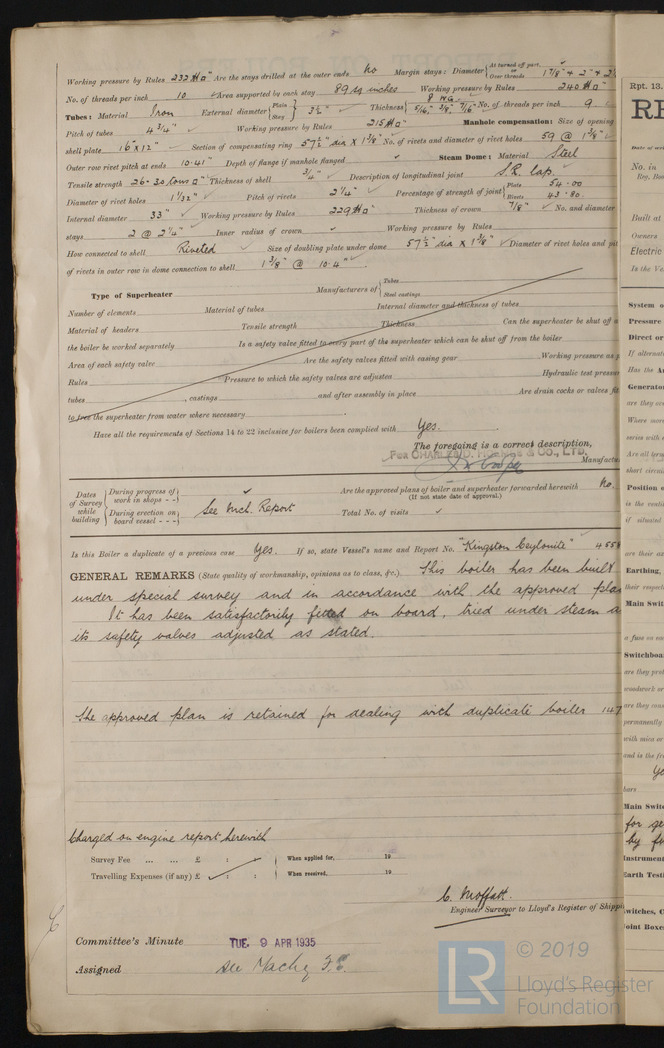 Working pressure by Rules 232 #□" Are the stays drilled at the outer ends No Margin stays: Diameter { At turned off part, or Over threads 1 7/8" + 2" + 2
No. of threads per inch 10 Area supported by each stay 89 sq inches Working pressure by Rules 240 #□"
Tubes: Material Iron External diameter { Plain Stay } 3½" Thickness { 8 W.G. 5/16, 3/8, 7/16" No. of threads per inch 9
Pitch of tubes 4¾" Working pressure by Rules 215 #□" Manhole compensation: Size of opening
shell plate 16" x 12" Section of compensating ring 57½" dia x 1 3/8" No. of rivets and diameter of rivet holes 59 @ 1 3/8"
Outer row rivet pitch at ends 10.41" Depth of flange if manhole flanged Steam Dome: Material Steel
Tensile strength 26-30 tons □" Thickness of shell ¾" Description of longitudinal joint S.R. Lap.
Diameter of rivet holes 1 1/32" Pitch of rivets 2¼" Percentage of strength of joint { Plate 54.00 Rivets 43.80.
Internal diameter 33" Working pressure by Rules 229 #□" Thickness of crown 7/8" No. and diameter
stays 2 @ 2¼" Inner radius of crown Working pressure by Rules
How connected to shell Riveted Size of doubling plate under dome 57½" dia x 1 3/8" Diameter of rivet holes and pit
of rivets in outer row in dome connection to shell 1 3/8" @ 10.4"
Type of Superheater Manufacturers of { Tubes Steel castings
Number of elements Material of tubes Internal diameter and thickness of tubes
Material of headers Tensile strength Thickness Can the superheater be shut off a
the boiler be worked separately Is a safety valve fitted to every part of the superheater which can be shut off from the boiler
Area of each safety valve Are the safety valves fitted with easing gear Working pressure as p
Rules Pressure to which the safety valves are adjusted Hydraulic test pressu
tubes , castings and after assembly in place Are drain cocks or valves fi
to free the superheater from water where necessary
Have all the requirements of Sections 14 to 22 inclusive for boilers been complied with Yes.
The foregoing is a correct description,
Manufactu
Dates of Survey while building { During progress of work in shops - - During erection on board vessel - - } See Mch. Report Are the approved plans of boiler and superheater forwarded herewith No.
(If not state date of approval.)
Total No. of visits
Is this Boiler a duplicate of a previous case Yes. If so, state Vessel's name and Report No. "Kingston Ceylonite"
GENERAL REMARKS (State quality of workmanship, opinions as to class, &c.) This boiler has been built
under special survey and in accordance with the approved plan
It has been satisfactorily fitted on board, tried under steam a
its safety valves adjusted as stated.
The approved plan is retained for dealing with duplicate boiler 147
Charged on engine report herewith
Survey Fee ... ... £ : : When applied for, 19
Travelling Expenses (if any) £ : : When received, 19
C. Moffatt.
Engineer Surveyor to Lloyd's Register of Shippi
Committee's Minute TUE. 9 APR 1935
Assigned See Machy F.E.
Rpt. 13.
RE
No. in
Reg. Boo
Built at
Owners
Electric
Is the Ve
System o
Pressure
Direct or
If alternat
Has the A
Generator
are they ov
Position o
Earthing,
Main Swit
Switchboa
Main Switc
for ge
Instrument
Earth Testi
Switches, C
Joint Boxe
LR
© 2019
Lloyd's Register
Foundation